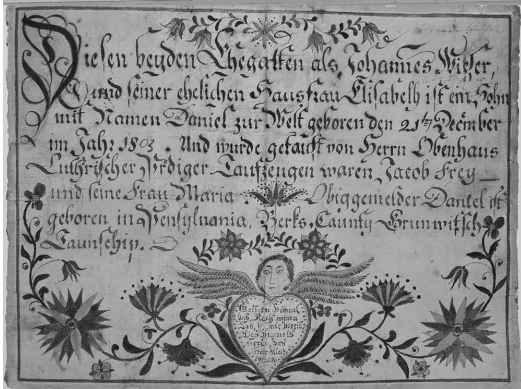 Diesen beyden Ehegatten als Johannes Witser,
und seiner ehelichen Hausfrau Elisabeth ist ein Sohn
mit Namen Daniel zur Welt geboren den 21ten December
im Jahr 1803. Und wurde getauft von Herrn Obenhaus
Luthrischer Prediger. Taufzeugen waren Jacob Frey
und seine Frau Maria Obiggemelder Daniel ist
geboren in Pensylvania, Berks, Caunty Grunwitsch
Taunschip.